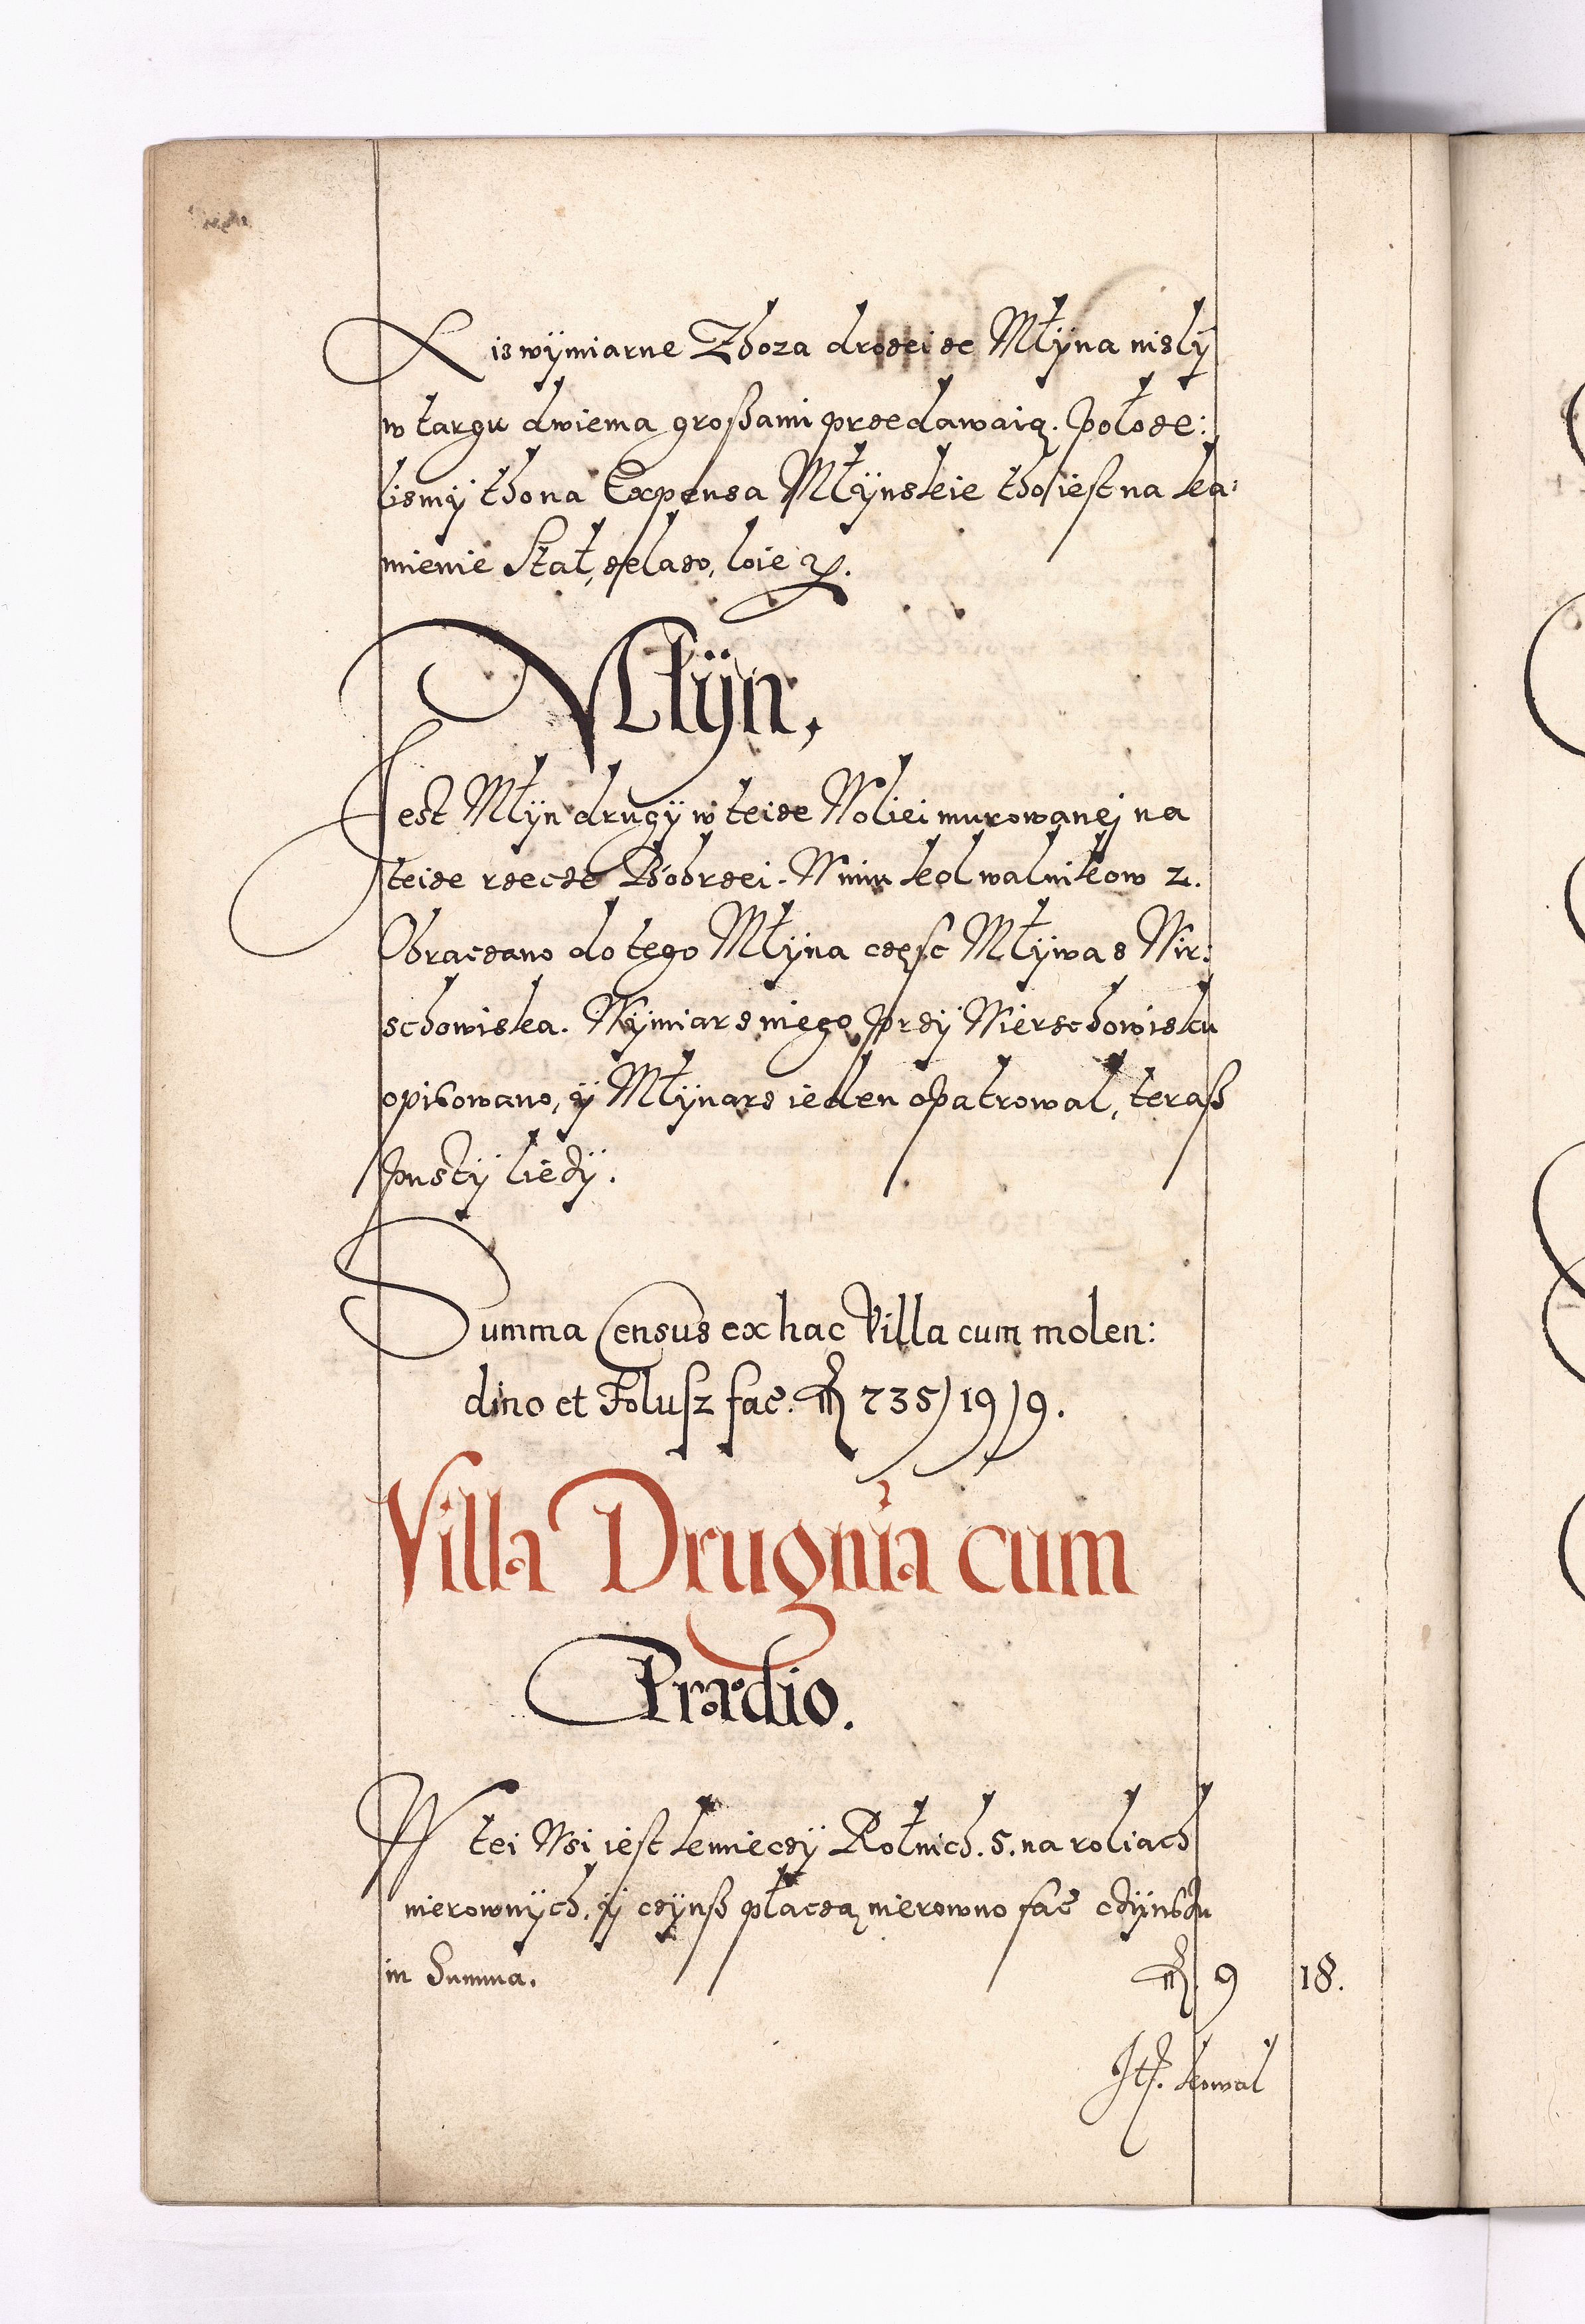 Z is wymiarne Zboza drozei ze Młyna nisly
w targu dwiema großami przedawaią. Położe:
lismy tho na Expensa Młynskie tho iest na ka:
mienie Stal, zelazo, loie
Młyn,
Jest Młyn drugy w teize Woliei murowanej na
teize rzecze Bobrzei. W nim kol walnikow 2.
Obraczano do tego Młyna częsc Mływa z Wir:
schowiska. Wymiar z niego przy Wierschowisku
opisowano, y Młynarz ieden opatrowal, teraß
pusty liezy.
Summa Census ex hac Villa cum molen:
dino et Folusz fac. 735/19/9.
Villa Drugnia cum
Prædio.
W tei Wsi iest kmieczy Rolnich. 5. na roliach
nierownych, y czynß płaczą nierowno fac czynszu
in Summa. 9 18.
It. kowal